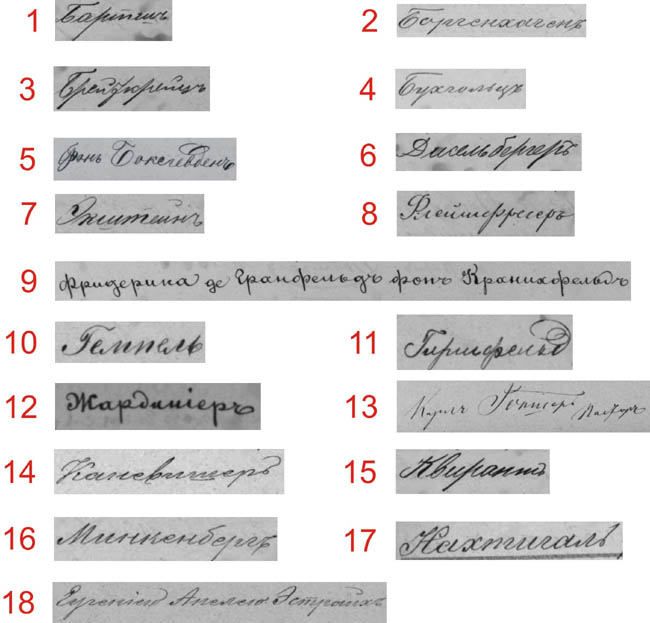 1 Бартель
2 Боргенхагенъ
3 Брейткрейцъ
4 Бухгольцъ
5 фонъ Боксгевденъ
6 Дисельбергеръ
7 Экштейнъ
8 Флейшфресеръ
9 Фридерика де Гранфельдъ фонъ Кранихфельдъ
10 Гемпель
11 Гиршфельд
12 Жардиніеръ
13 Карлъ Гепнеръ
14 Каневишеръ
15 Квирантъ
16 Минкенбергъ
17 Нахтигалъ
18 Еугенією Анелею Эстрейхъ